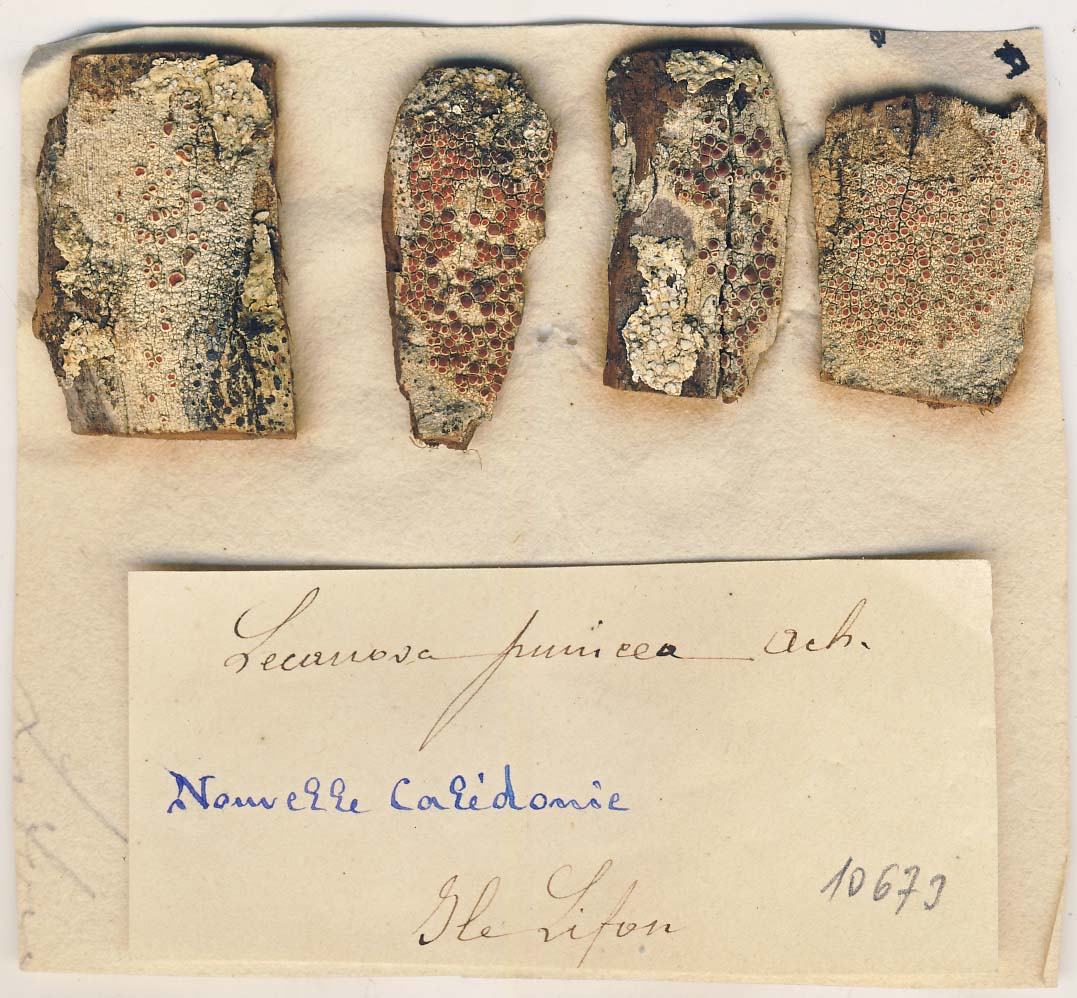 Lecanora punicea Ach.
Nouvelle Calédonie
Ile Lifou
10679